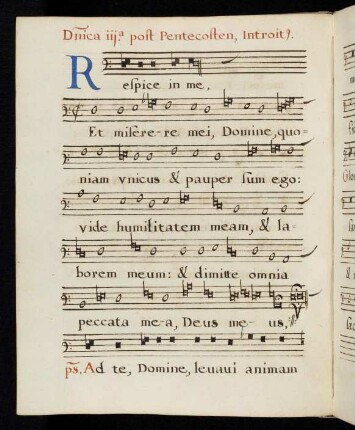 Dn̄ica iij.ª post Pentecosten, Introit⁹.
Respice in me,
Et misere-re mei, Domine, quo=
niam vnicus & pauper sum ego:
vide humilitatem meam, & la=
borem meum: & dimitte omnia
peccata me-a, Deus me- us,
ps. Ad te, Domine, leuaui animam